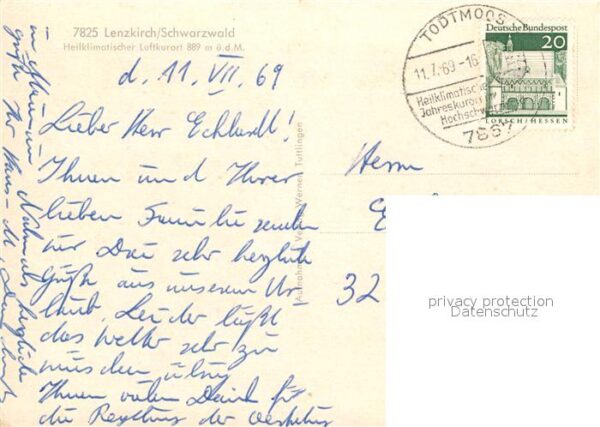 7825 Lenzkirch/Schwarzwald
Heilklimatischer Luftkurort 889 m ü.d.M.
d. 11. VII. 69
Lieber Herr Eckhardt!
Ihnen und Ihrer
lieben Familie senden
wir Dau sehr herzliche
Grüße aus unserem Ur-
laub. Leider läßt
das Wetter sehr zu
wünschen übrig
Ihnen vielen Dank für
die Regelung der
Nochmals herzliche
Grüße Ihr
Aufnahme u. Verlag Werner, Tuttlingen
TODTMOOS
11.7.69-16
Heilklimatische
Jahreskurort
Hochschwarz
7867
Deutsche Bundespost
20
LORSCH/HESSEN
Herrn
E
32
privacy protection
Datenschutz